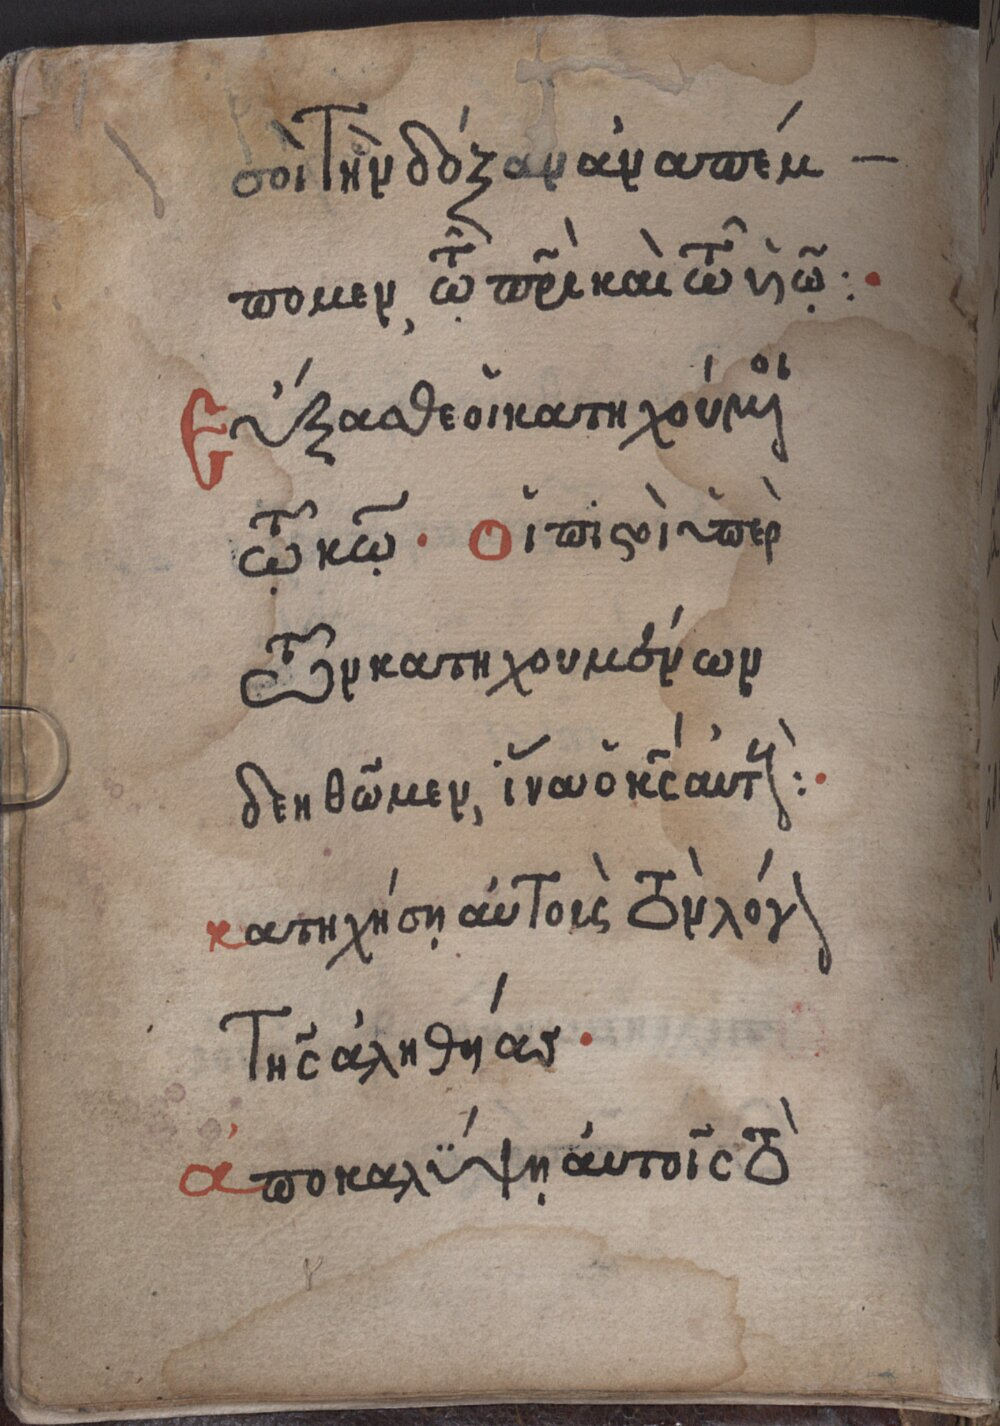 σοὶ τὴν δόξαν ἀναπέμ –
πομεν, τῷ πρ̃ὶ καὶ τῷ ὑῷ :·
Εὔξασθε οἱ κατηχούμ̓οι
τῷ κῷ · Οἱ πιϛοὶ ὑπὲρ
τῶν κατηχουμένων
δεηθῶμεν, ἵνα ὁ κς̃ αὐτ(οὺς) :·
κατηχήσῃ αὐτοις τὸν λόγον
Τῆς ἀληθήας ·
ἀποκαλϋψῃ ἀυτοῖς τὸ